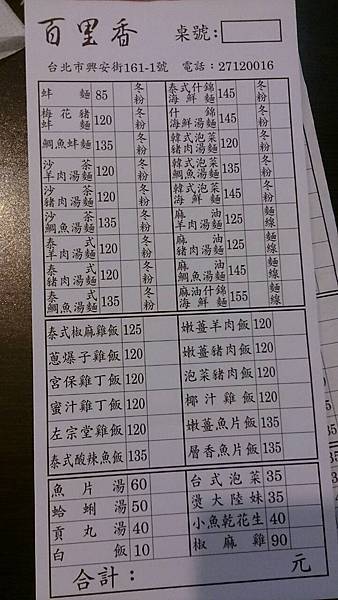 百里香 桌號:
台北市興安街161-1號 電話:27120016
蚌麵 85 冬粉 泰式什錦海鮮麵 145 冬粉
梅花豬蚌麵 120 冬粉 什錦海鮮湯麵 145 冬粉
鯛魚蚌麵 135 冬粉 韓式泡菜豬肉湯麵 120 冬粉
沙茶羊肉湯麵 120 冬粉 韓式泡菜鯛魚湯麵 135 冬粉
沙茶豬肉湯麵 120 冬粉 韓式泡菜海鮮麵 145 冬粉
沙茶鯛魚湯麵 135 冬粉 麻油羊肉湯麵 125 麵線
泰式羊肉湯麵 120 冬粉 麻油豬肉湯麵 125 麵線
泰式豬肉湯麵 120 冬粉 麻油鯛魚湯麵 145 麵線
泰式鯛魚湯麵 135 冬粉 麻油什錦海鮮麵 155 麵線
泰式椒麻雞飯 125 嫩薑羊肉飯 120
蔥爆子雞飯 120 嫩薑豬肉飯 120
宮保雞丁飯 120 泡菜豬肉飯 120
蜜汁雞丁飯 120 椰汁雞飯 120
左宗堂雞飯 120 嫩薑魚片飯 135
泰式酸辣魚飯 135 層香魚片飯 135
魚片湯 60 台式泡菜 35
蛤蜊湯 50 燙大陸妹 35
貢丸湯 40 小魚乾花生 40
白飯 10 椒麻雞 90
合計: 元